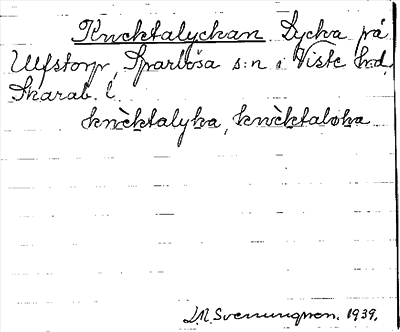 Knektalyckan Lycka på
Ulfstorp, Sparlösa s:n i Viste hd,
Skarab. l.
knèktalyka, knèktaloka
D.N. Svenungson. 1939.